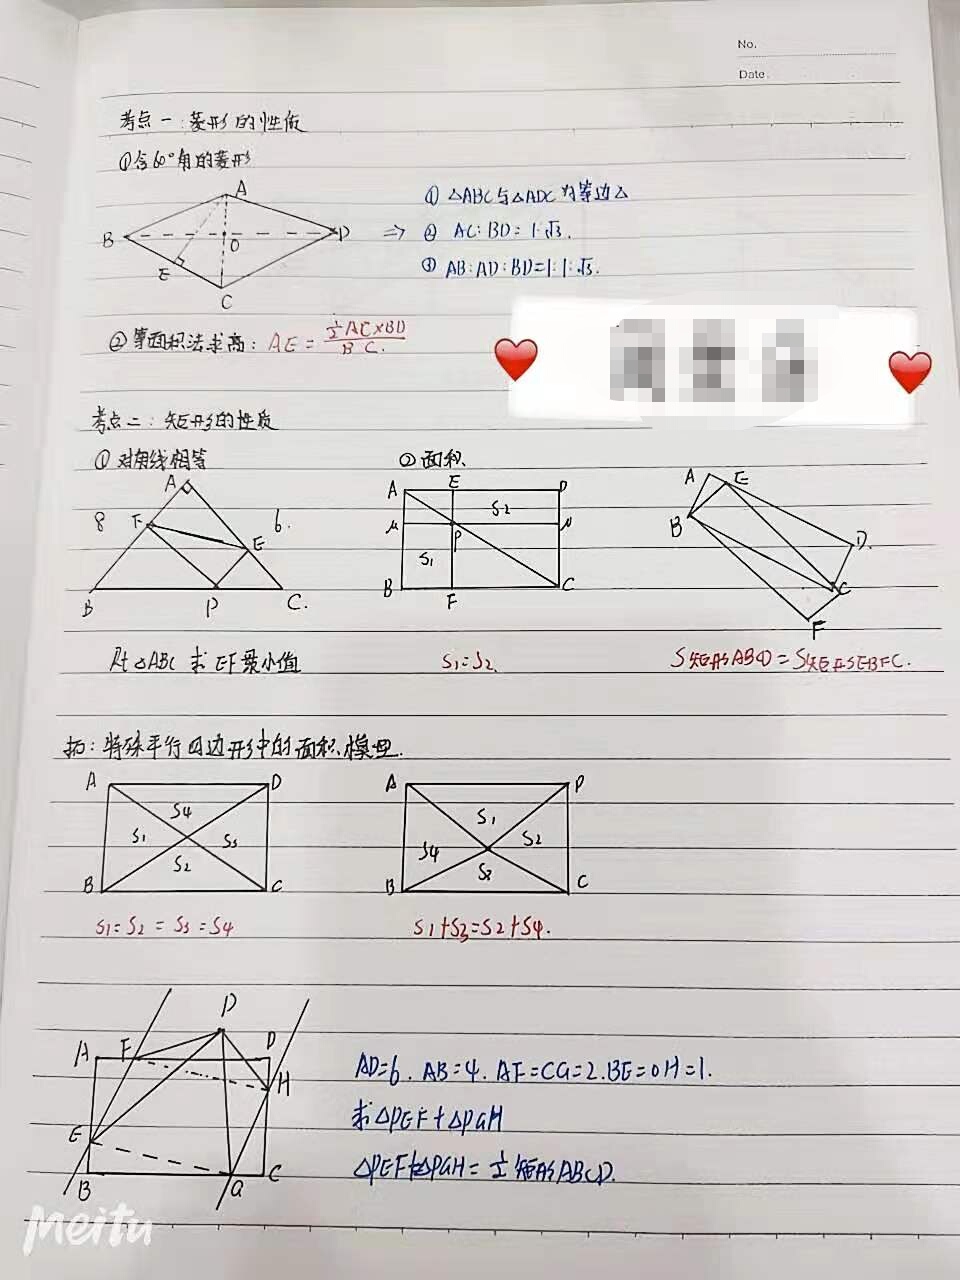 No.
Date.
考点一:菱形的性质
①含60°角的菱形
A
B
O
D
E
C
⇒
① △ABC与△ADC为等边△
② AC:BD=1:√3.
③ AB:AD:BD=1:1:√3.
②等面积法求高: AE = ½AC×BD / BC.
考点二:矩形的性质
①对角线相等
②面积
A
8
F
6.
E
B
P
C.
A
E
D
S2
M
P
N
S1
B
F
C
A
E
B
D.
C
F
Rt△ABC 求EF最小值
S1=S2.
S矩形ABCD=S矩形EBFC.
拓:特殊平行四边形中的面积模型.
A
D
S4
S1
S3
S2
B
C
A
D
S1
S2
S4
S3
B
C
S1=S2=S3=S4
S1+S3=S2+S4.
P
A
F
D
H
E
B
G
C
AD=6. AB=4. AF=CG=2. BE=DH=1.
求△PEF+△PGH
△PEF+△PGH=½矩形ABCD.
Meitu